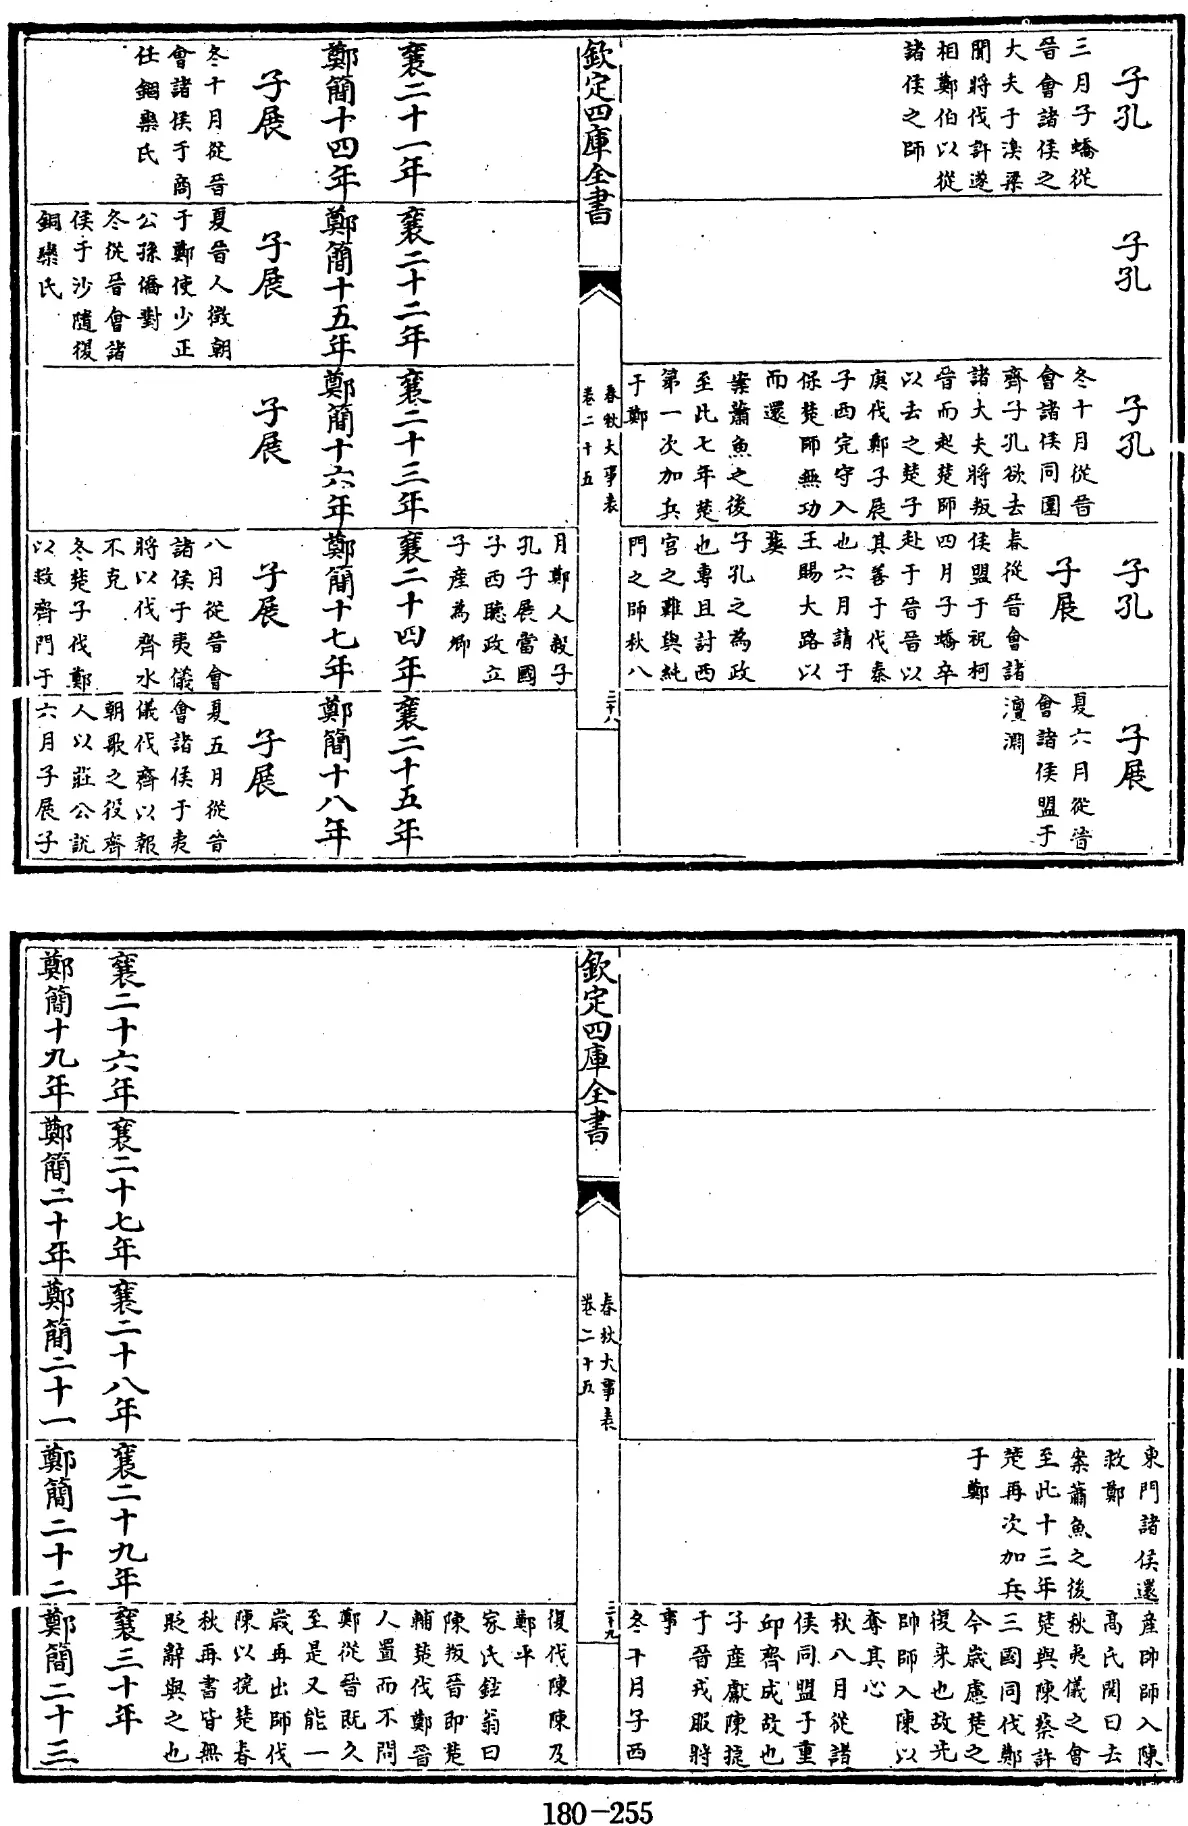 子孔
三月子蟜從
晉會諸侯之
大夫于湨梁
聞將伐許遂
相鄭伯以從
諸侯之師
子孔
子孔
冬十月從晉
會諸侯同圍
齊子孔欲去
諸大夫將叛
晉而起楚師
以去之楚子
庚伐鄭子展
子西完守入
保楚師無功
而還
案蕭魚之後
至此七年楚
第一次加兵
于鄭
子孔
子展
春從晉會諸
侯盟于祝柯
四月子蟜卒
赴于晉晉以
其善于伐秦
也六月請于
王賜大路以
葬
子孔之為政
也專且討西
宮之難與純
門之師秋八
子展
夏六月從晉
會諸侯盟于
澶淵
欽定四庫全書
春秋大事表
卷二十五
二十八
襄二十一年
鄭簡十四年
子展
冬十月從晉
會諸侯于商
任錮欒氏
襄二十二年
鄭簡十五年
子展
夏晉人徵朝
于鄭使少正
公孫僑對
冬從晉會諸
侯于沙隨復
錮欒氏
襄二十三年
鄭簡十六年
子展
月鄭人殺子
孔子展當國
子西聽政立
子産為卿
襄二十四年
鄭簡十七年
子展
八月從晉會
諸侯于夷儀
將以伐齊水
不克
冬楚子伐鄭
以救齊門于
襄二十五年
鄭簡十八年
子展
夏五月從晉
會諸侯于夷
儀伐齊以報
朝歌之役齊
人以莊公說
六月子展子
東門諸侯還
救鄭
案蕭魚之後
至此十三年
楚再次加兵
于鄭
産帥師入陳
高氏閌曰去
秋夷儀之會
楚與陳蔡許
三國同伐鄭
今歲慮楚之
復來也故先
帥師入陳以
奪其心
秋八月從諸
侯同盟于重
邱齊成故也
子産獻陳捷
于晉戎服將
事
冬十月子西
欽定四庫全書
春秋大事表
卷二十五
二十九
襄二十六年
鄭簡十九年
襄二十七年
鄭簡二十年
襄二十八年
鄭簡二十一
襄二十九年
鄭簡二十二
復伐陳陳及
鄭平
家氏鉉翁曰
陳叛晉即楚
輔楚伐鄭晉
人置而不問
鄭從晉既久
至是又能一
歲再出師伐
陳以撓楚春
秋再書皆無
貶辭與之也
襄三十年
鄭簡二十三
180-255